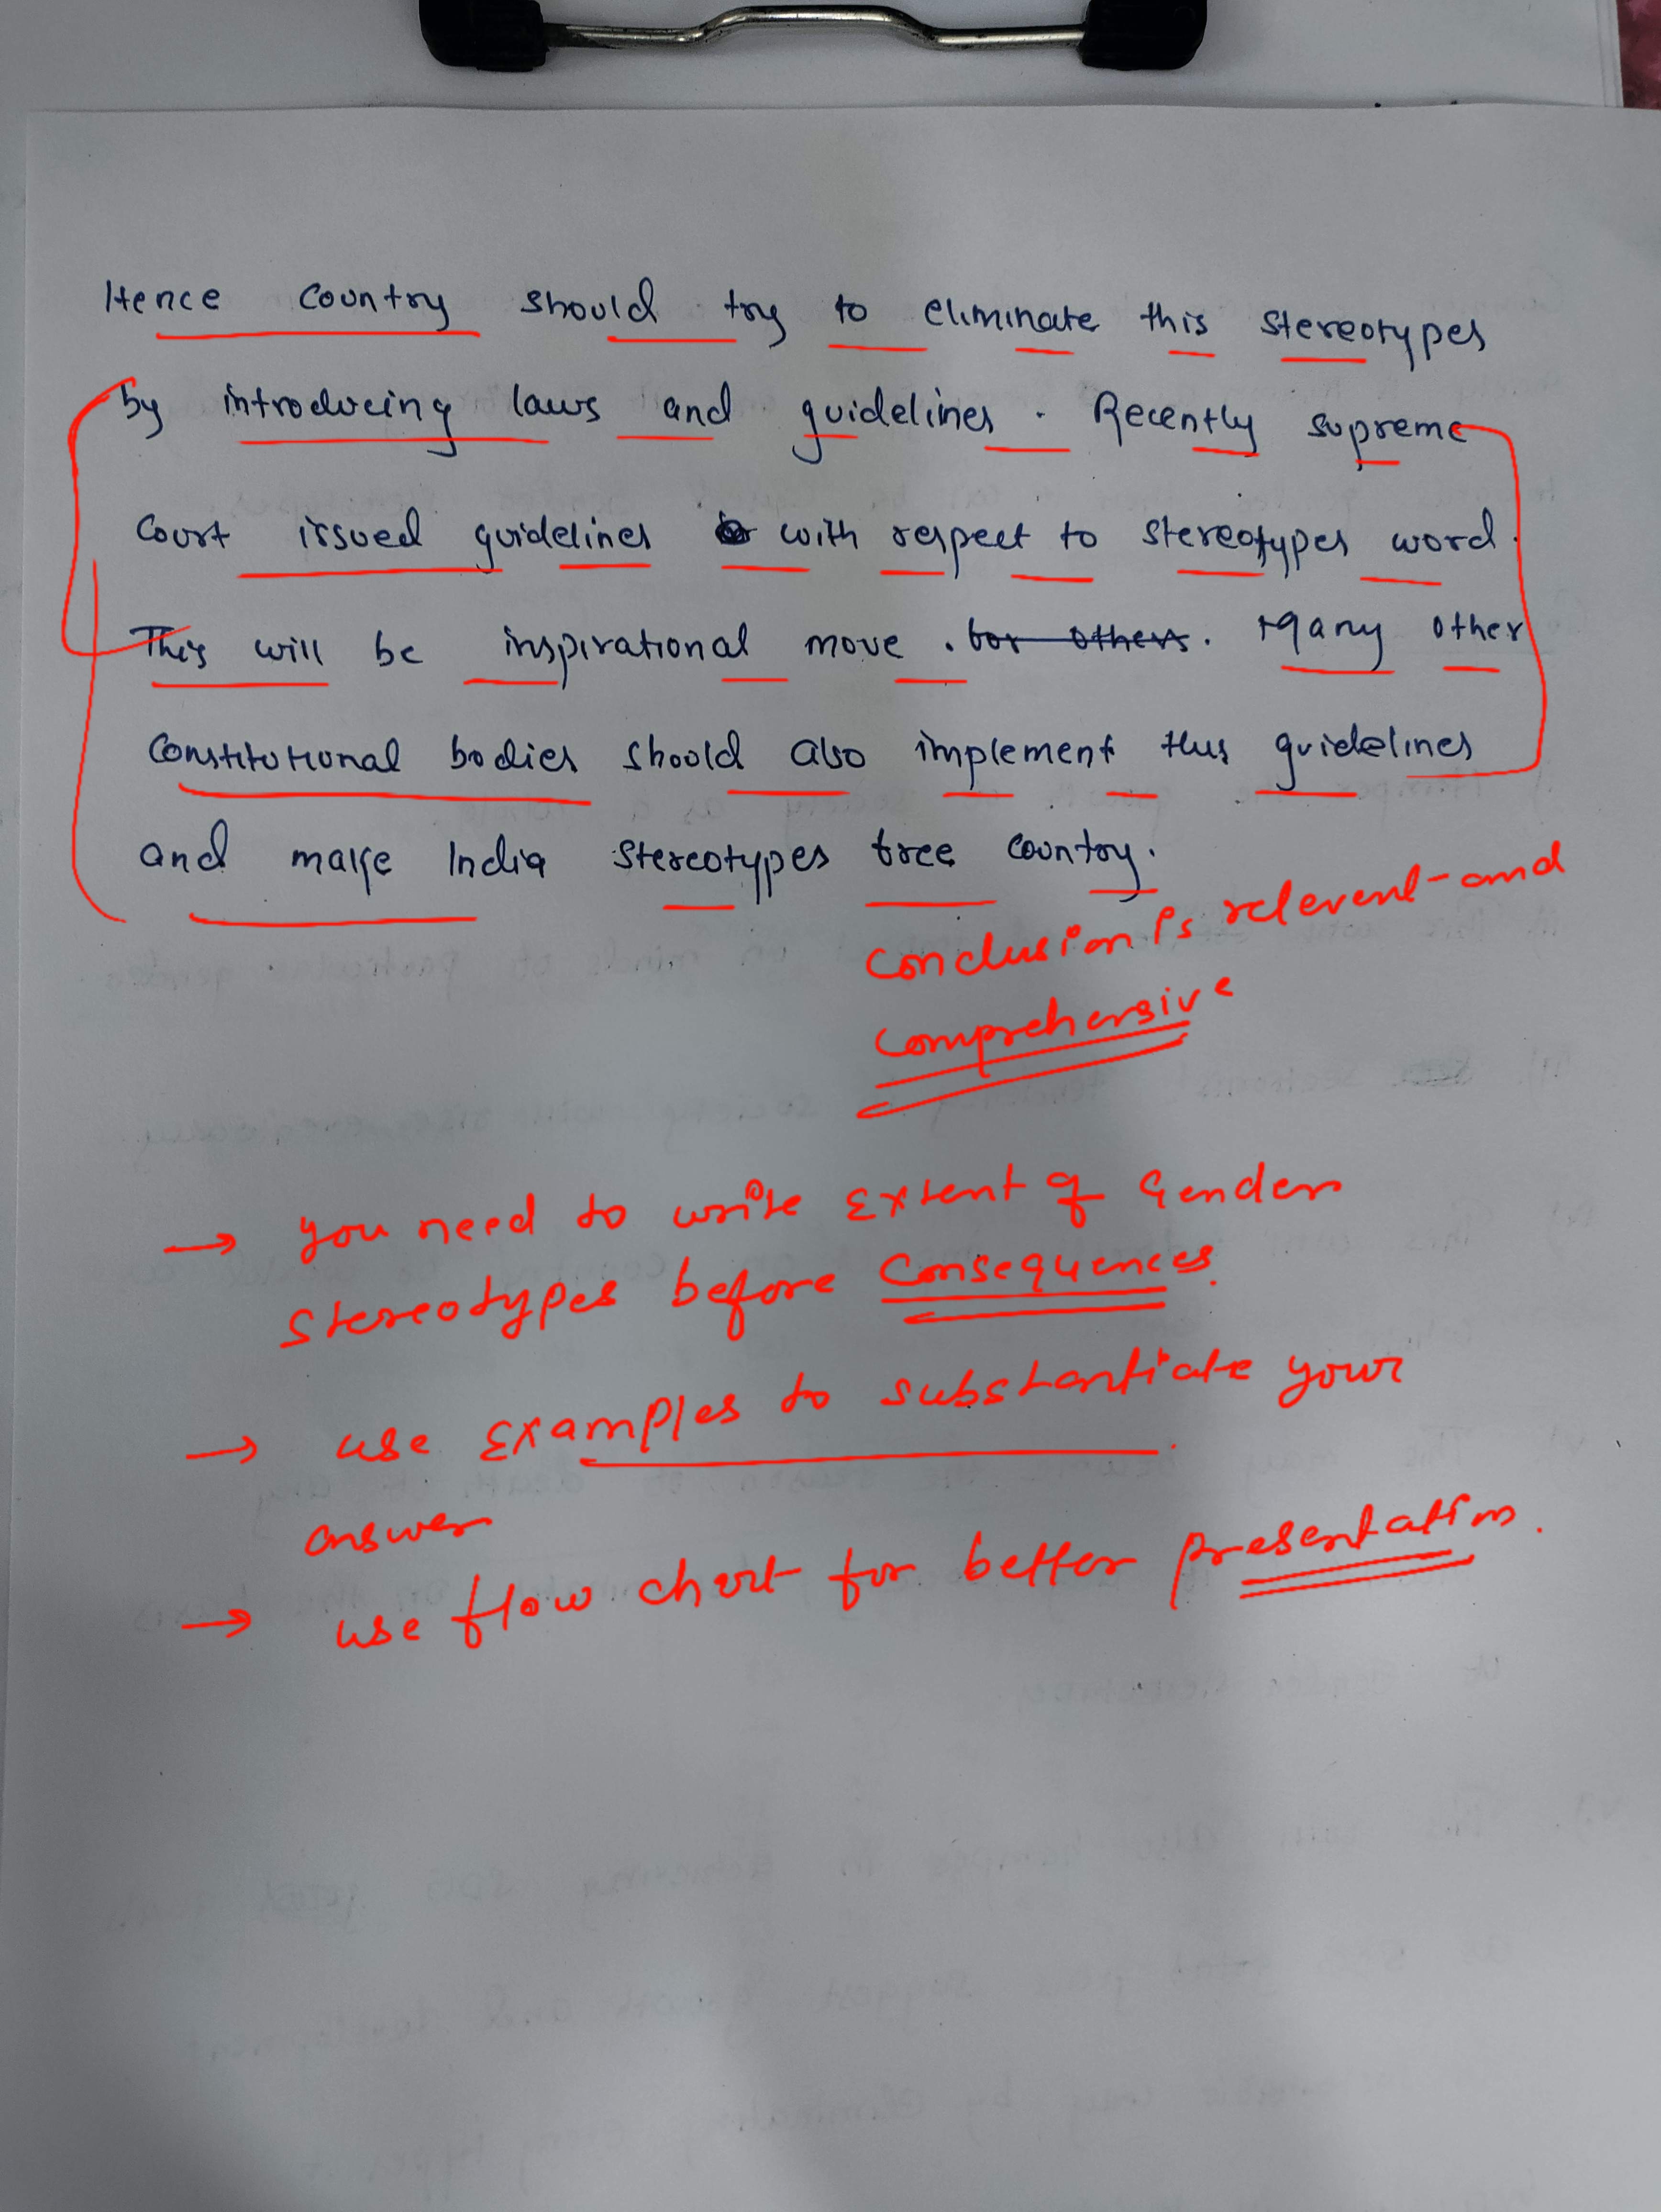 Hence Country should try to eliminate this stereotypes
by introducing laws and guidelines. Recently supreme
Court issued guidelines with respect to stereotypes word.
This will be inspirational move. for others. Many other
Constitutional bodies should also implement this guidelines
and make India stereotypes free country.
Conclusion is relevent and
comprehensive
→ you need to write Extent of Gender
stereotypes before Consequences.
→ use Examples to substantiate your
answer
→ use flow chart for better presentation.